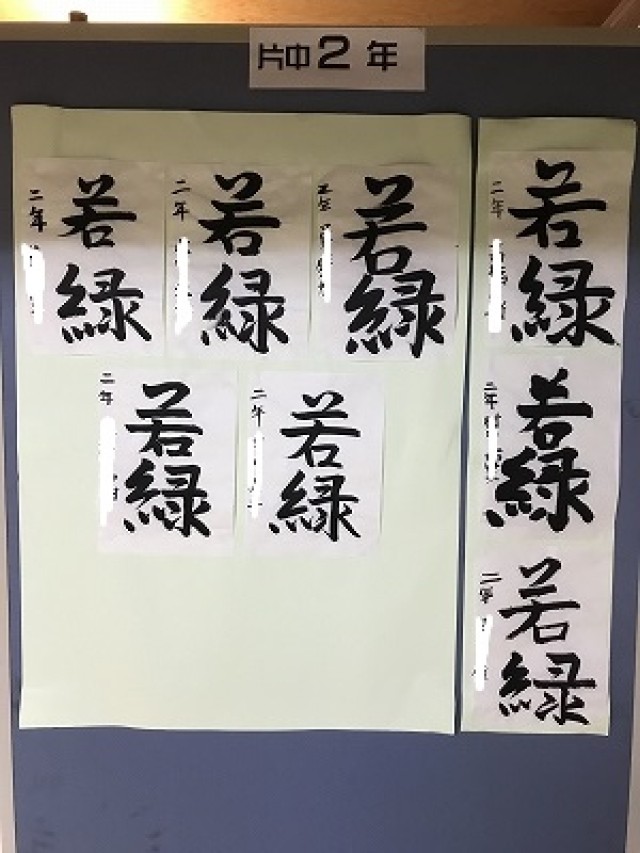 片中2年
若緑
二年
若緑
二年
若緑
二年
若緑
二年
若緑
二年
若緑
二年
若緑
二年
若緑
二年